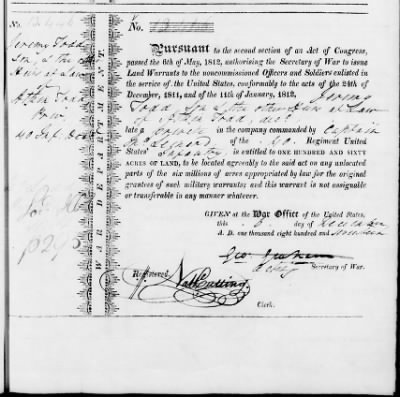 No.
Jeremy Todd
son, & the other
heirs at Law
of
Athen Todd
WAR DEPARTMENT.
No.
Pursuant to the second section of an Act of Congress,
passed the 6th of May, 1812, authorising the Secretary of War to issue
Land Warrants to the noncommissioned Officers and Soldiers enlisted in
the service of the United States, conformably to the acts of the 24th of
December, 1811, and of the 11th of January, 1812, Jeremy
Todd, son, & the other heirs at Law
of Athen Todd, dec'd
late a private in the company commanded by Captain
of the 40 Regiment United
States' Infantry is entitled to ONE HUNDRED AND SIXTY
ACRES OF LAND, to be located agreeably to the said act on any unlocated
parts of the six millions of acres appropriated by law for the original
grantees of such military warrants; and this warrant is not assignable
or transferable in any manner whatever.
GIVEN at the War Office of the United States,
this day of December
A. D. one thousand eight hundred and
Geo. Graham
Secretary of War.
Registered,
Nath Cutting
Clerk.